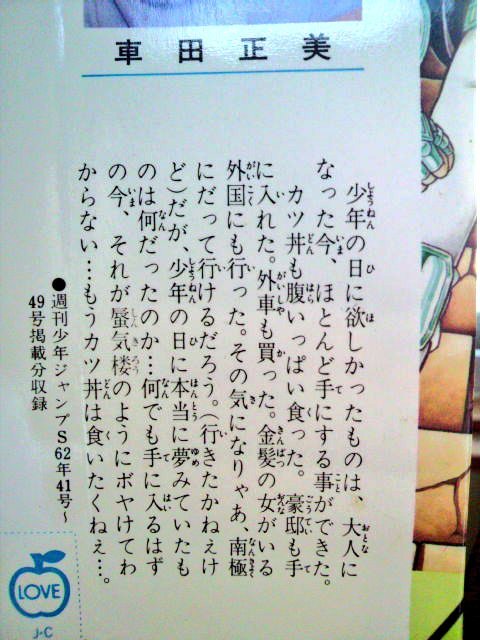 車田正美
少年の日に欲しかったものは、大人に
なった今、ほとんど手にする事ができた。
カツ丼も腹いっぱい食った。豪邸も手
に入れた。外車も買った。金髪の女がいる
外国にも行った。その気になりゃあ、南極
にだって行けるだろう。(行きたかねえけ
ど)だが、少年の日に本当に夢みていたも
のは何だったのか…何でも手に入るはず
の今、それが蜃気楼のようにボヤけてわ
からない…もうカツ丼は食いたくねぇ…。
●週刊少年ジャンプS62年41号~
49号掲載分収録
LOVE
J・C